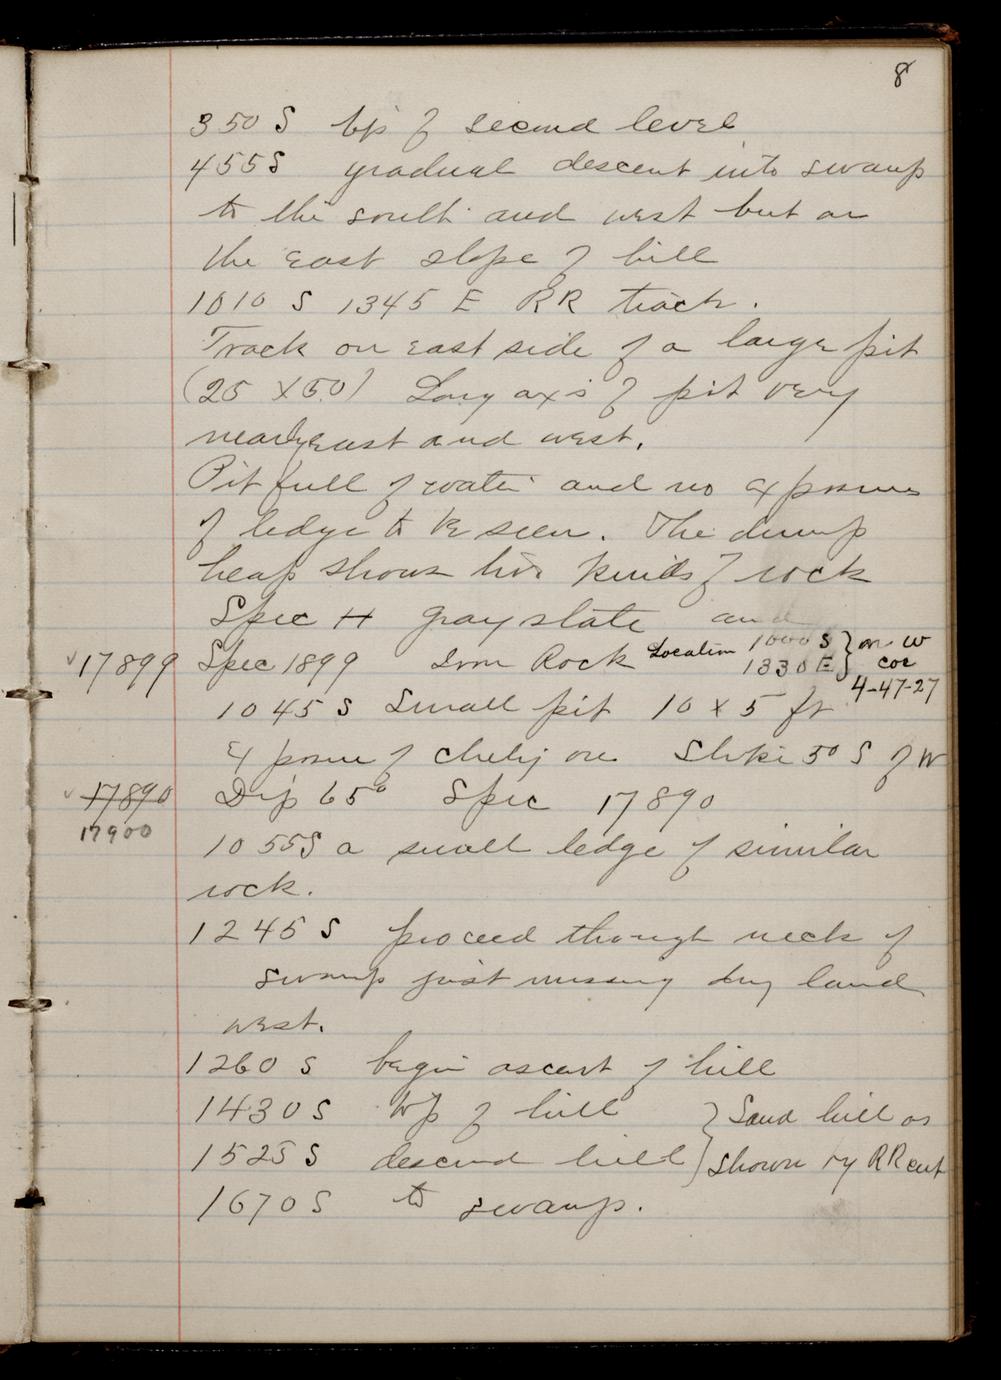 8
350 S top of second level
455 S gradual descent into swamp
to the south and west but on
the east slope of hill
1010 S 1345 E RR track.
Track on east side of a large pit
(25 x 50) Long axis of pit very
nearly east and west.
Pit full of water and no exposures
of ledge to be seen. The dump
heap shows two kinds of rock
Spec H gray slate and
17899 Spec 1899 Iron Rock Location 1000 S } on W
1330 E } cor
4-47-27
1045 S Small pit 10 x 5 ft
Exposure of cherty ore Strike 5° S of W
17890 Dip 65° Spec 17890
17900
1055 S a small ledge of similar
rock.
1245 S proceed through neck of
swamp just missing dry land
west.
1260 S begin ascent of hill
1430 S top of hill } Sand hill as
1525 S descend hill } shown by RR cut
1670 S to swamp.